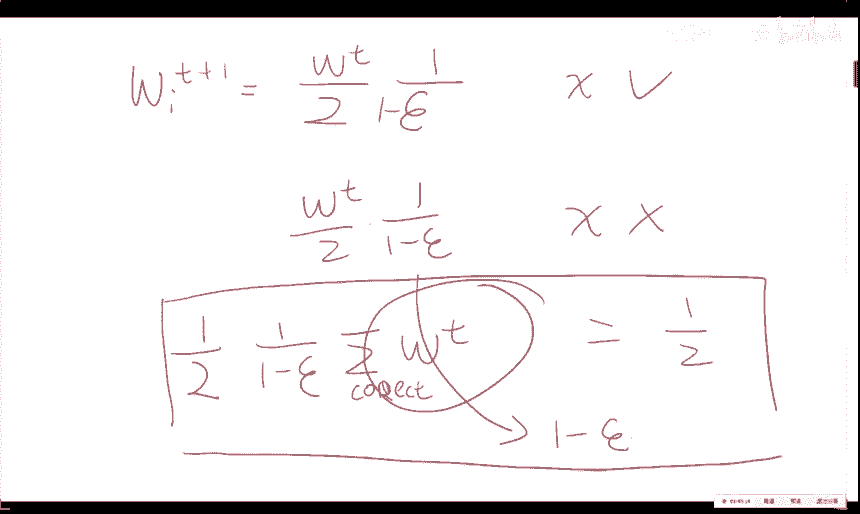 Wᵢ^{t+1} = \frac{W^t}{2} \frac{1}{1-ε} x ✓
\frac{W^t}{2} · \frac{1}{1-ε} x ×
\frac{1}{2} \frac{1}{1-ε} Σ_{correct} W^t = \frac{1}{2}
1-ε